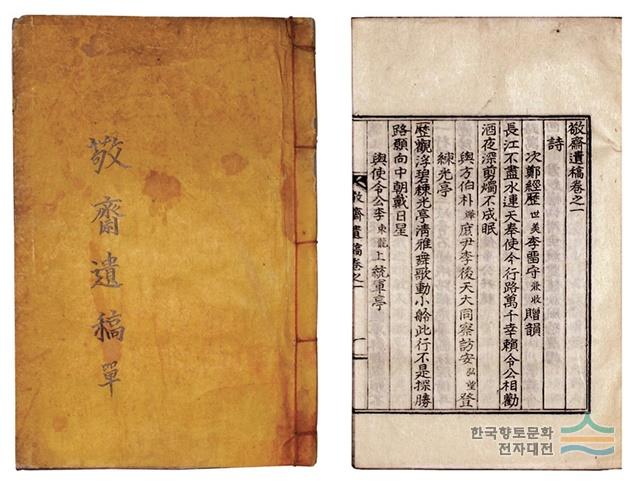 敬齋遺稿 單
敬齋遺稿卷之一
詩
次鄭經歷世美李留守兼收贈韻
長江不盡水連天奉使今行路萬千幸賴令公相勸
酒夜深剪燭不成眠
與方伯朴燁庶尹李後天大同察訪安弘望登
練光亭
歷觀浮碧練光亭淸雅舞歌動小舲此行不是探勝
路願向中朝戴日星
與使令公李東龍上統軍亭
敬齋遺稿卷之一
한국향토문화
전자대전